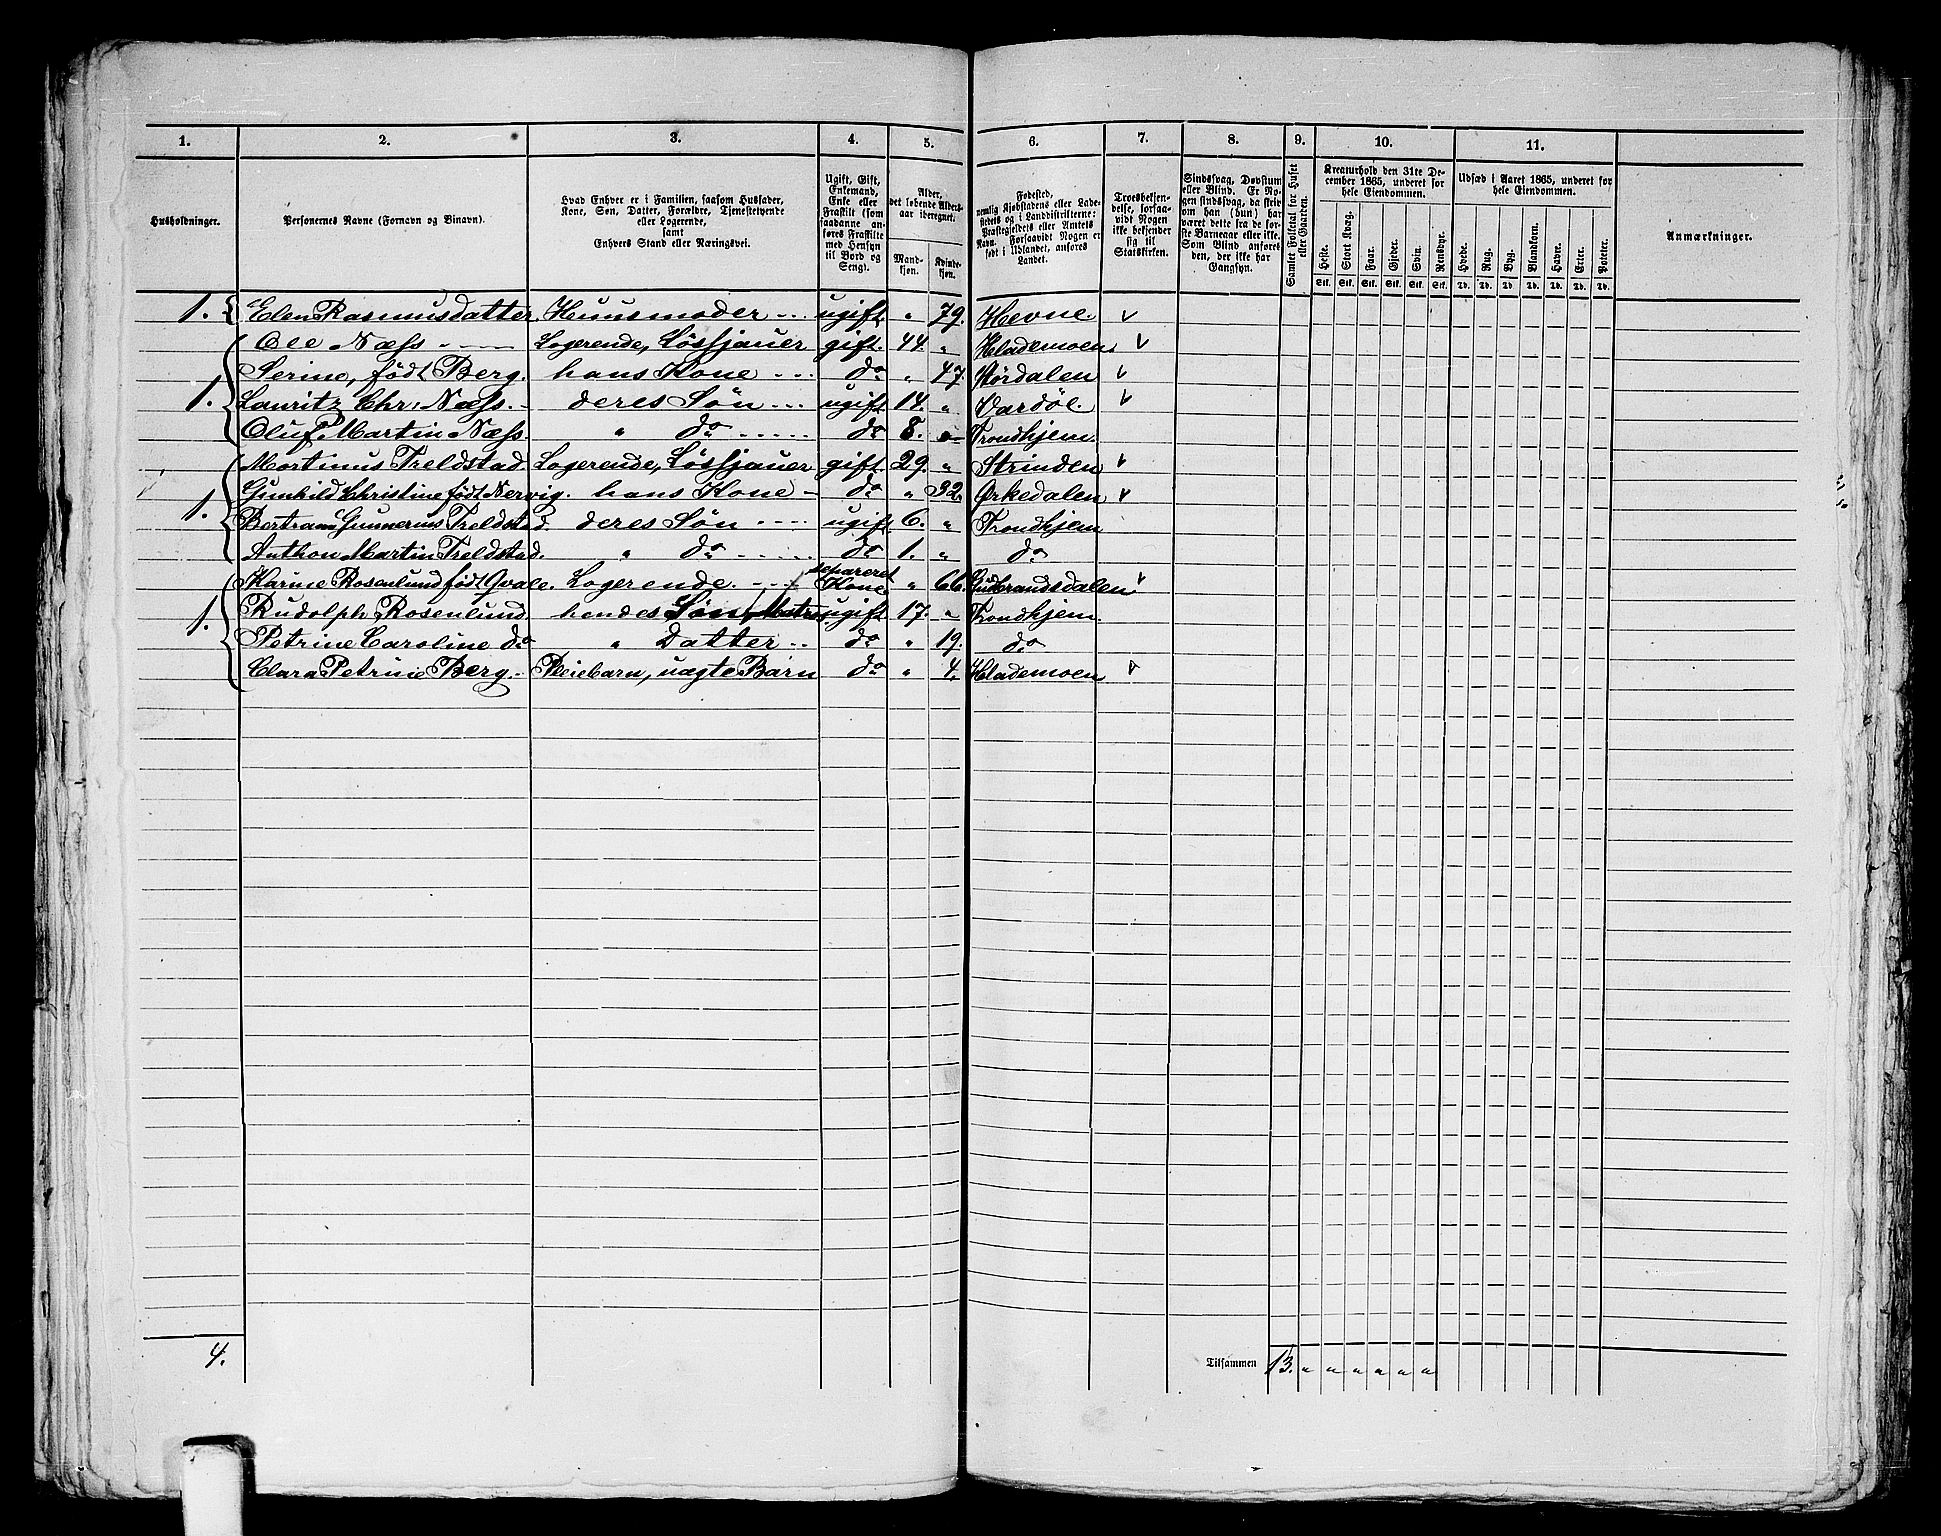 1. 2. 3. 4. 5. 6. 7. 8. 9. 10. 11.
Husholdninger.
Personernes Navne (Fornavn og Binavn).
Hvad Enhver er i Familien, saasom Husfader,
Kone, Søn, Datter, Forældre, Tjenestetyende
eller Logerende,
samt
Enhvers Stand eller Næringsvei.
Ugift, Gift,
Enkemand,
Enke eller
Fraskilt (som
saadanne an-
føres Fraskilte
med Hensyn
til Bord og
Seng).
Alder,
det løbende Alders-
aar iberegnet.
Mand-
kjøn.
Kvinde-
kjøn.
Fødested,
nemlig Kjøbstadens eller Lade-
stedets og i Landdistrikterne:
Præstegjeldets eller Amtets
Navn. Forsaavidt Nogen er
født i Udlandet, anføres
Landet.
Troesbekjen-
delse, forsaa-
vidt Nogen
ikke bekjender
sig til
Statskirken.
Sindssvag, Døvstum
eller Blind. Er No-
gen sindssvag, da skriv
om han (hun) har
været dette fra de før-
ste Barneaar eller ikke.
Som Blind anføres
den, der ikke har
Gangsyn.
Samlet Folketal for Huset
eller Gaarden.
Kreaturhold den 31te De-
cember 1865, underet for
hele Eiendommen.
Heste. Stort Kvæg. Faar. Gjeder. Svin. Rensdyr.
Stk. Stk. Stk. Stk. Stk. Stk.
Udsæd i Aaret 1865, underet for
hele Eiendommen.
Hvede. Rug. Byg. Blandkorn. Havre. Erter. Poteter.
Td. Td. Td. Td. Td. Td. Td.
Anmærkninger.
1. Elen Rasmusdatter. Huusmoder ugift. " 79. Hevne v
Ole Næss Logerende, Løssjauer gift. 44. " Hlademoen. v
Serine, født Berg. hans Kone do " 47. Størdalen v
1. Lauritz Chr: Næss. deres Søn ugift 14. " Vardöe. v
Oluf Martin Næss. " do do 8. " Trondhjem.
Mortinus Treldstad. Logerende, Løssjauer gift. 29. " Strinden v
1. Gunhild Christine født Nervig. hans Kone do " 32. Ørkedalen v
Bertram Gunnerius Treldstad. deres Søn ugift 6. " Trondhjem
Anthon Martin Treldstad. " do do 1. " do
Karine Rosenlund født Qvale. Logerende. separeret Kone. " 66. Gudbrandsdalen v
1. Rudolph Rosenlund. hendes Søn, ugift 17. " Trondhjem.
Petrine Caroline do " Datter do " 19. do
Clara Petrine Berg. Pleiebarn, uægte Barn do " 4. Hlademoen v
4. Tilsammen 13. " " " " " "